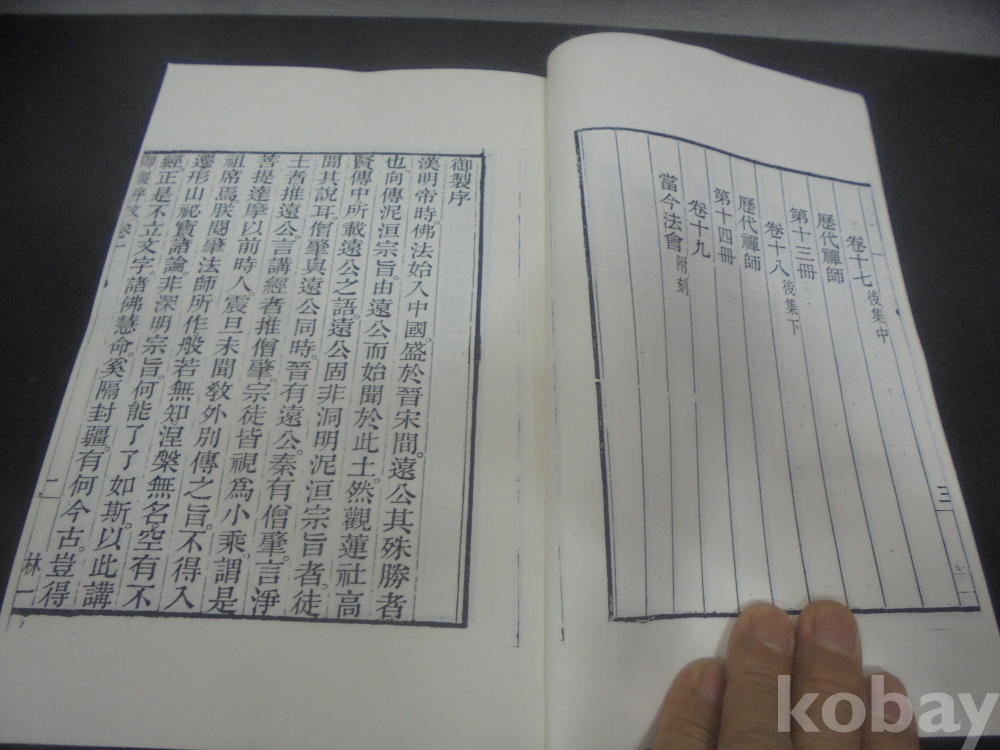 卷十七後集中
歷代禪師
第十三冊
卷十八後集下
歷代禪師
第十四冊
卷十九
當今法會附刻
三
御製序
漢明帝時。佛法始入中國。盛於晉宋間。遠公其殊勝者
也。向傳泥洹宗旨。由遠公而始聞於此土。然觀蓮社高
賢傳中。所載遠公之語。遠公固非洞明泥洹宗旨者。徒
聞其說耳。僧肇與遠公同時。晉有遠公。秦有僧肇。言淨
土者推遠公。言講經者推僧肇。宗徒皆視爲小乘。謂是
菩提達摩以前時人震旦未聞敎外別傳之旨。不得入
祖席焉。朕閱肇法師所作般若無知。涅槃無名。空有不
遷。形山祕寶諸論。非深明宗旨。何能了了如斯。以此講
經。正是不立文字。諸佛慧命。奚隔封疆。有何今古。豈得
御製序文 二 林一
kobay